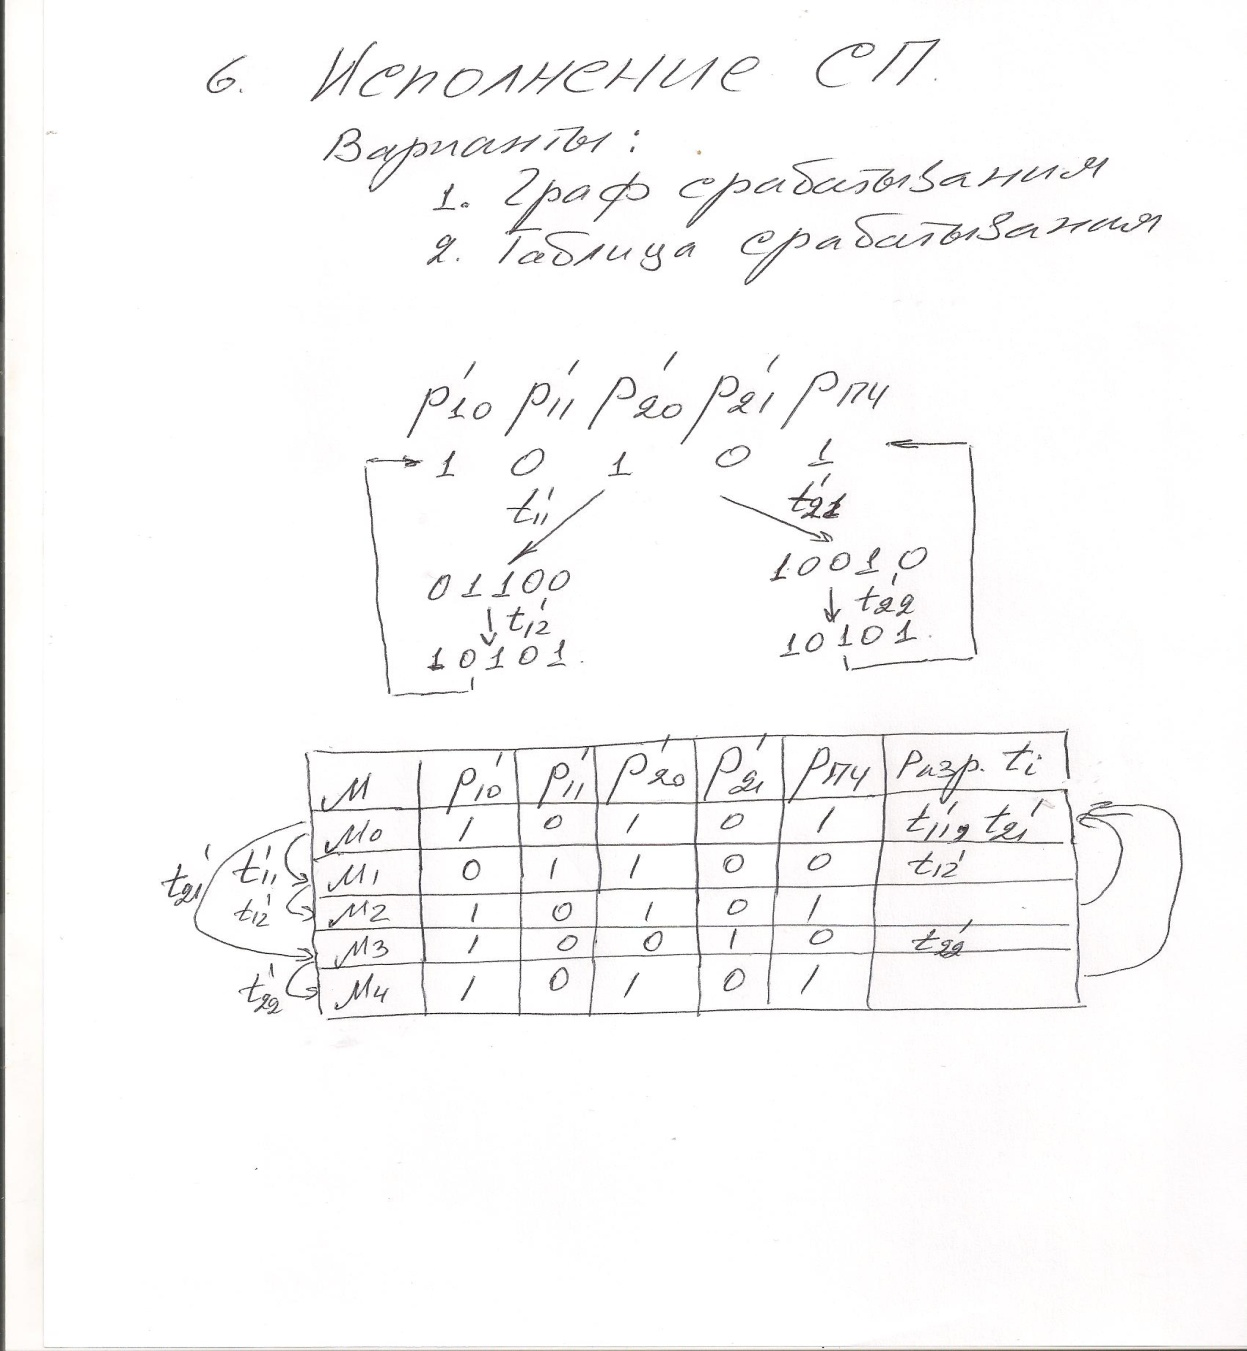 6. Исполнение СП.
Варианты:
1. Граф срабатывания
2. Таблица срабатывания
p'10 p'11 p'20 p'21 pпч
1 0 1 0 1
t'11 t'21
01100 10010
t'12 t'22
10101. 10101.
М p'10 p'11 p'20 p'21 pпч Разр. ti
М0 1 0 1 0 1 t'11, t'21
t'21 t'11 М1 0 1 1 0 0 t'12
t'12 М2 1 0 1 0 1
М3 1 0 0 1 0 t'22
t'22 М4 1 0 1 0 1